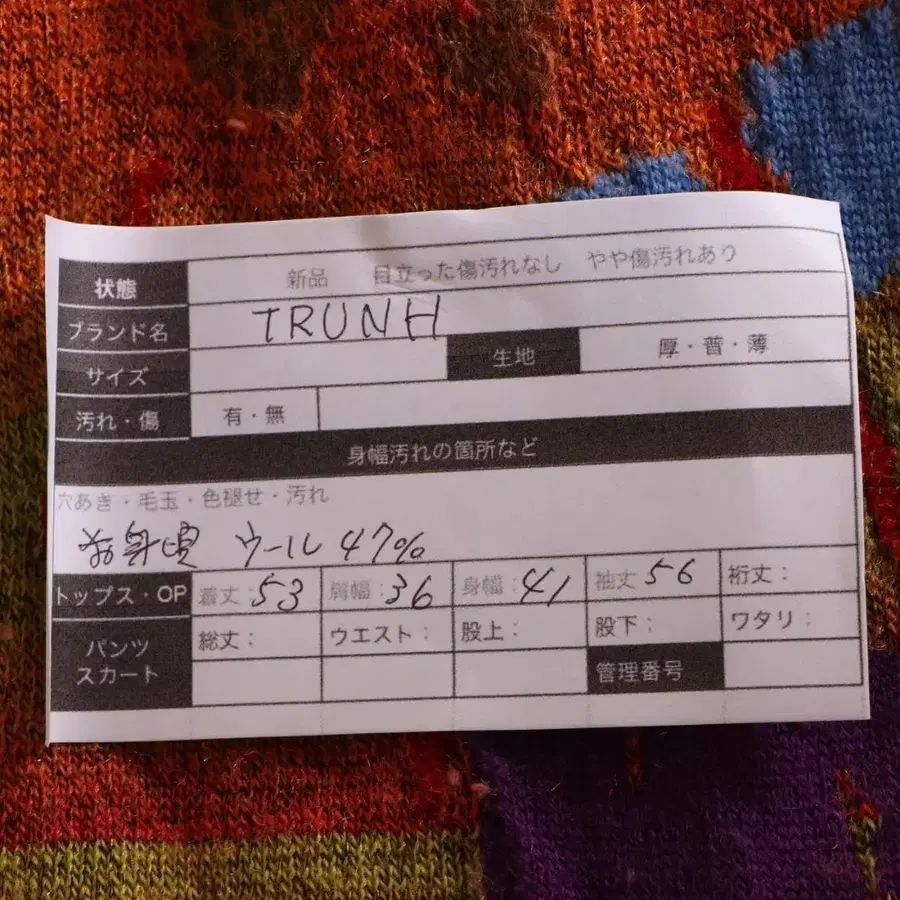 状態 新品 目立った傷汚れなし やや傷汚れあり
ブランド名 TRUNH
サイズ 生地 厚・普・薄
汚れ・傷 有・無
身幅汚れの箇所など
穴あき・毛玉・色褪せ・汚れ
前身頃 ウール 47%
トップス・OP 着丈:53 肩幅:36 身幅:41 袖丈 56 裄丈:
パンツ スカート 総丈: ウエスト: 股上: 股下: ワタリ:
管理番号